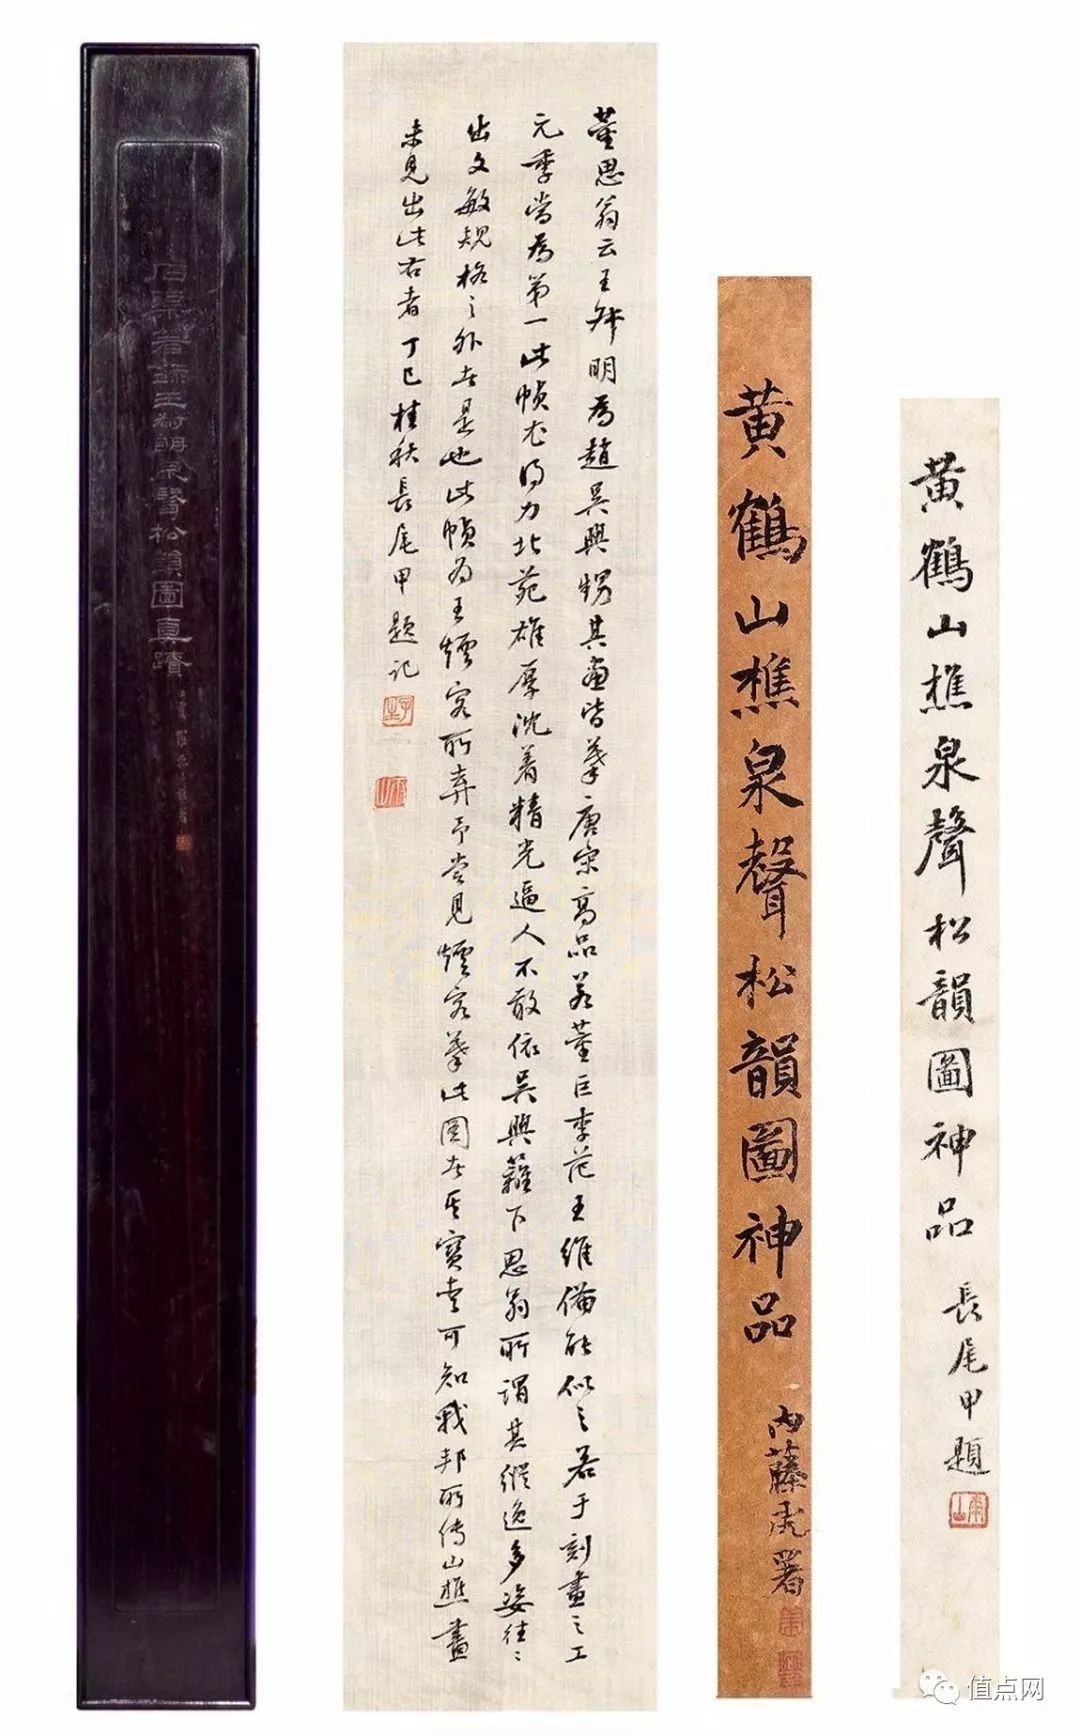 黄鶴山樵泉聲松韻圖神品
長尾甲題
黄鶴山樵泉聲松韻圖神品
内藤虎署
董思翁云王叔明為趙吳興甥其畫皆摹唐宋高品若董巨李范王維備能似之若于刻畫之工
元季當為第一此幀尤得力北苑雄厚沈着精光逼人不敢依吳興籬下思翁所謂其縱逸多姿往〻
出文敏規格之外者是也此幀為王煙客所弆予嘗見煙客摹此圖者其寶愛可知我邦所傳山樵畫
未見出此右者丁巳桂秋長尾甲題記
石渠著錄王叔明泉聲松韻圖真蹟
值点网